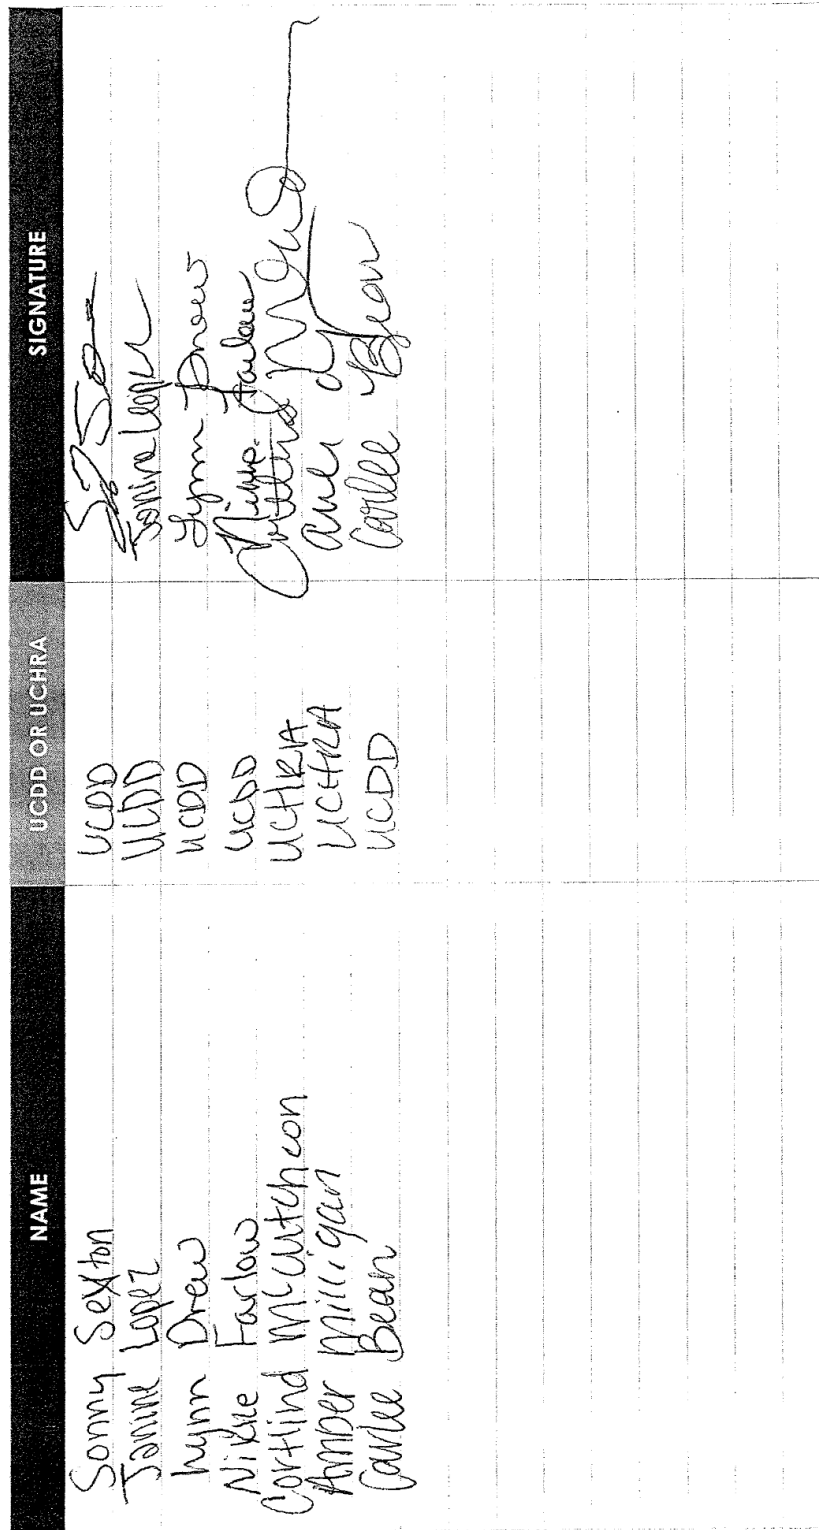 NAME UCDD OR UCHRA SIGNATURE
Sonny Sexton UCDD
Janine Lopez UCDD Janine Lopez
Lynn Drew UCDD Lynn Drew
Nikkie Farlow UCDD Farlow
Cortlind McCutcheon UCHRA
Amber Milligan UCHRA
Carlee Bean UCDD Carlee Bean